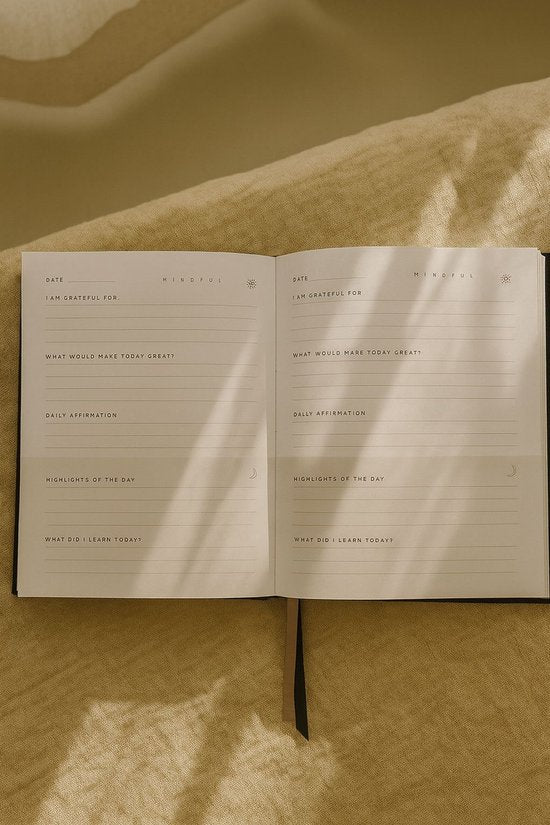 DATE MINDFUL
I AM GRATEFUL FOR
WHAT WOULD MAKE TODAY GREAT?
DAILY AFFIRMATION
HIGHLIGHTS OF THE DAY
WHAT DID I LEARN TODAY?
DATE MINDFUL
I AM GRATEFUL FOR
WHAT WOULD MAKE TODAY GREAT?
DALLY AFFIRMATION
HIGHLIGHTS OF THE DAY
WHAT DID I LEARN TODAY?